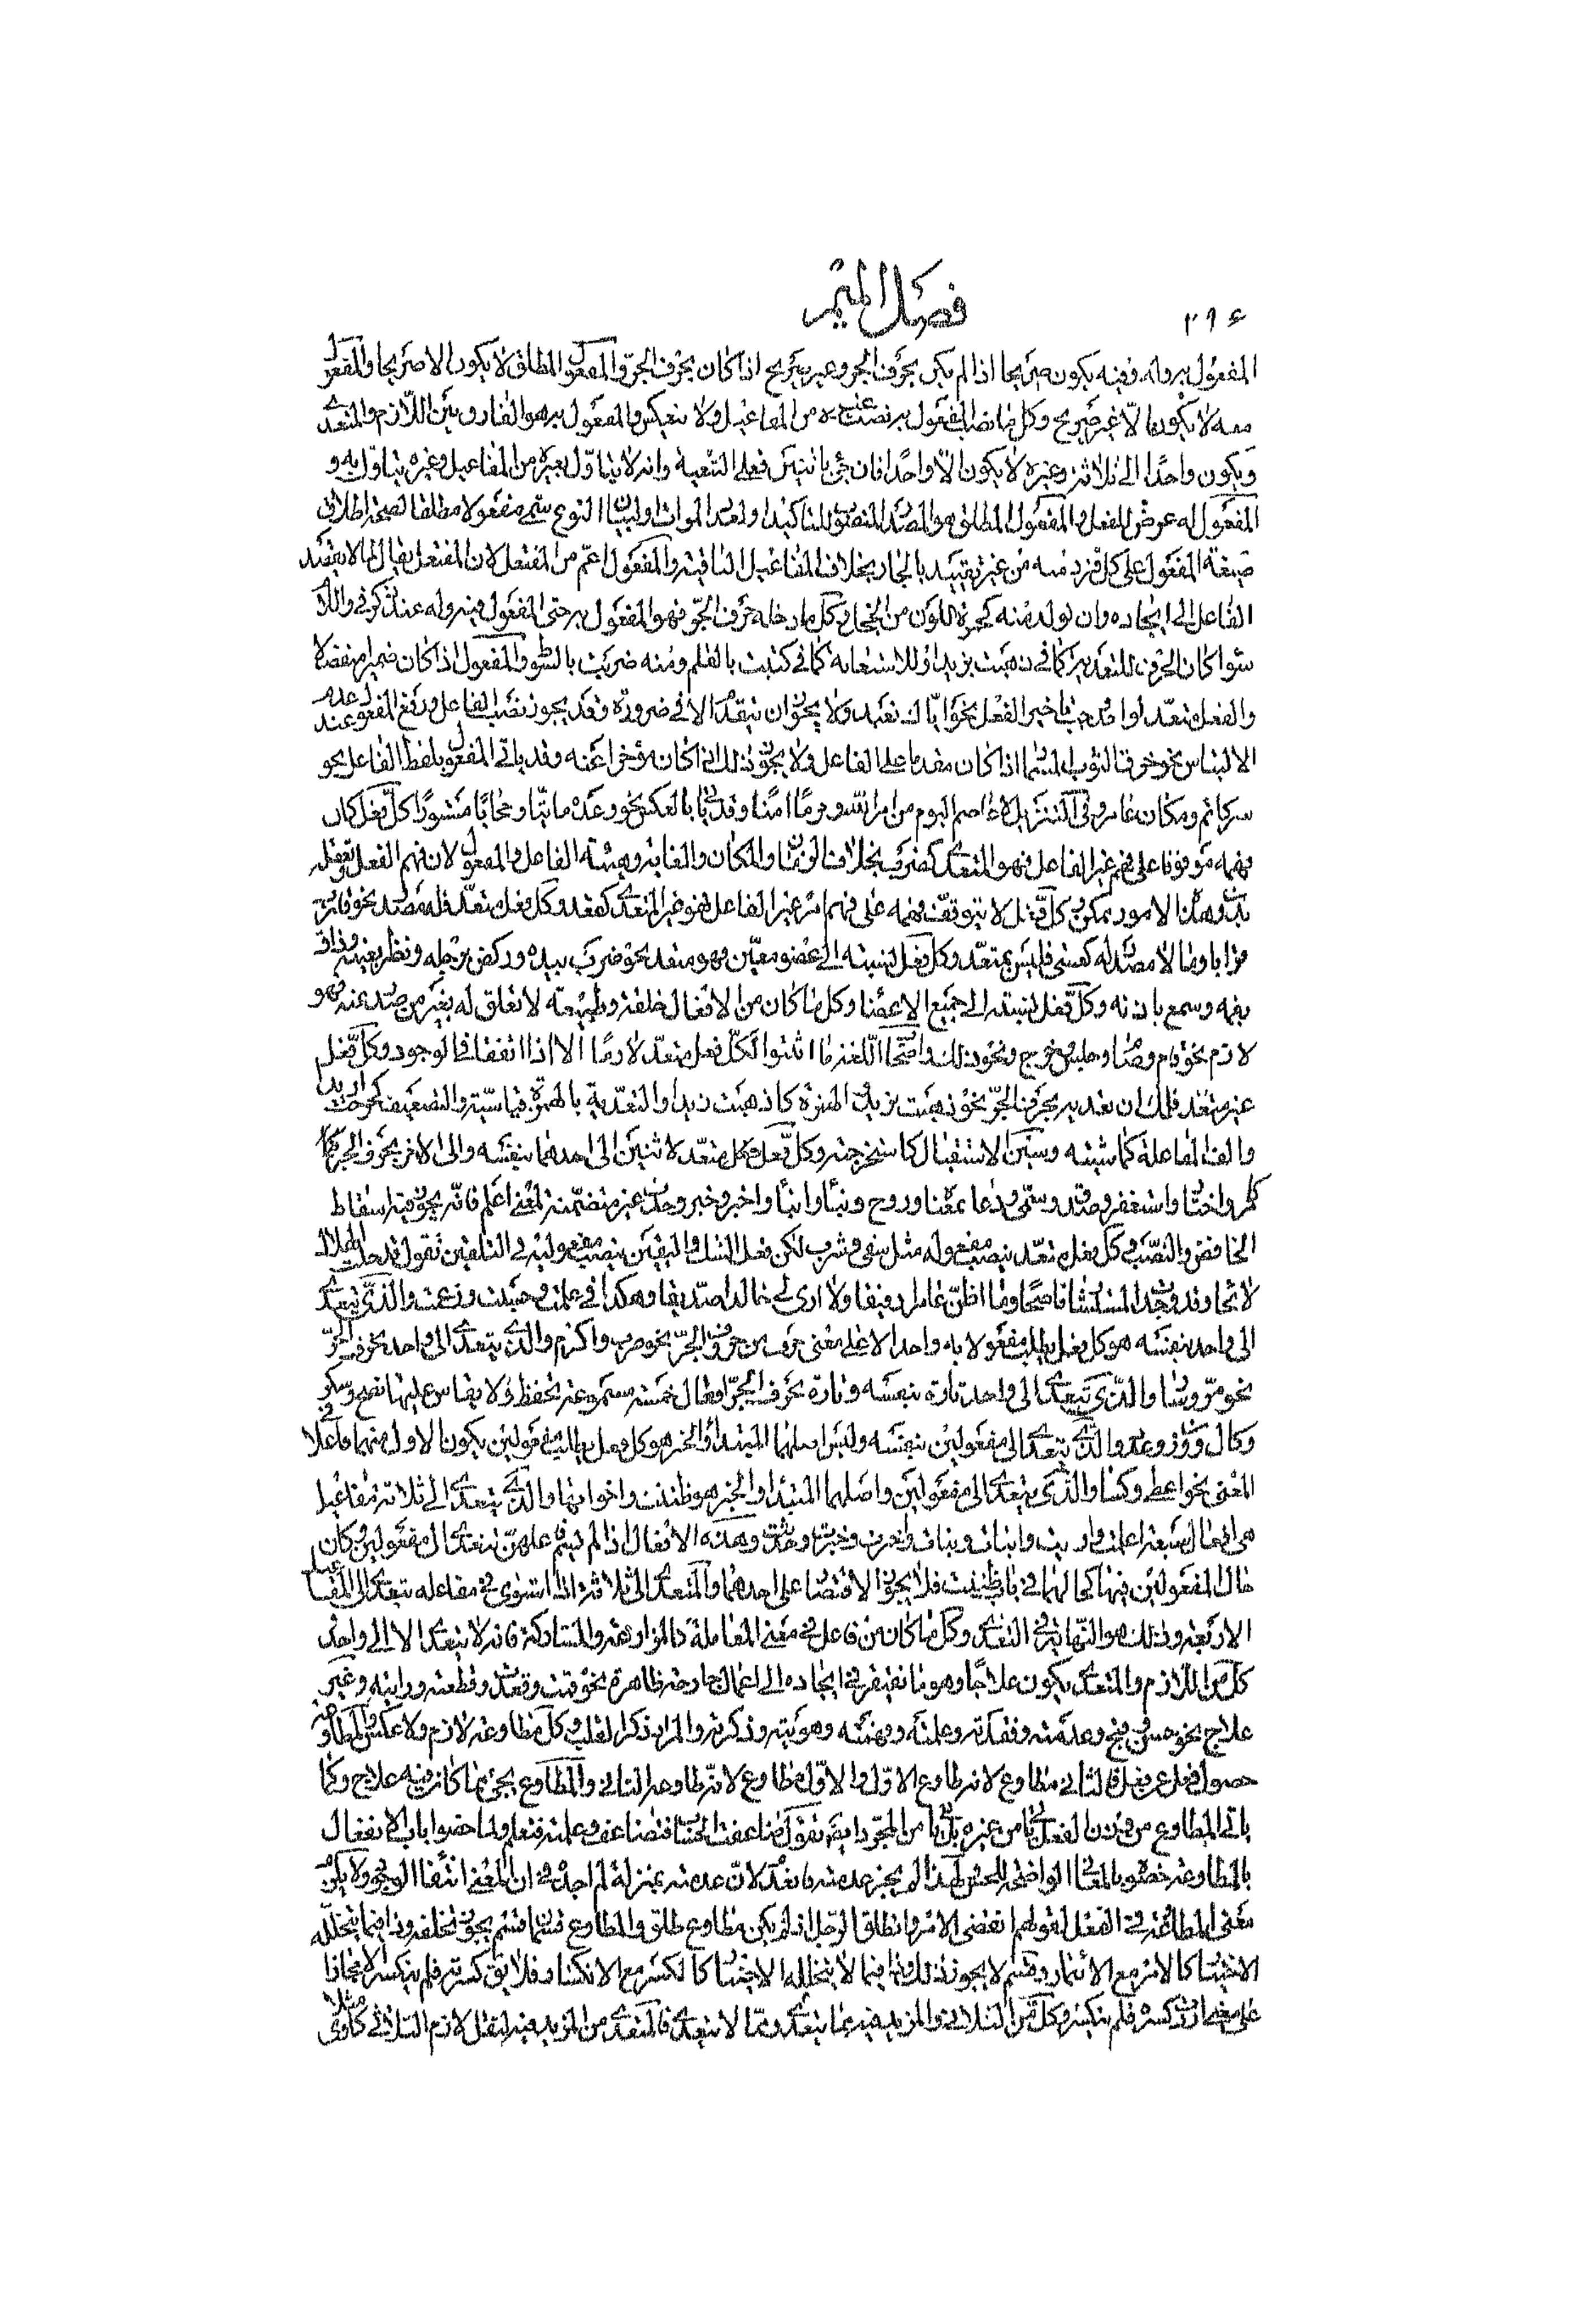 ٣١٤ فصل الميم
المفعول به وله وفيه يكون صريحا اذا لم يكن بحرف الجر وغير صريح اذا كان بحرف الجر والمفعول المطلق لا يكون الا صريحا والمفعول
معه لا يكون الا غير صريح وكل ما نصب المفعول به نصب غيره من المفاعيل ولا ينعكس والمفعول به هو الفارق بين اللازم والمتعدى
ويكون واحدا الى ثلاثة وغيره لا يكون الا واحدا فان جئ باثنين فعلى التبعية وانه لا يتأول بغيره من المفاعيل وغيره يتأول به و
المفعول له عرض للفعل والمفعول المطلق هو المصدر المنصوب للتأكيد او لعدد المرات او لبيان النوع سمى مفعولا مطلقا لصحة اطلاق
صيغة المفعول على كل فرد منه من غير تقييد بالجار بخلاف المفاعيل الباقية والمفعول اعم من المنفعل لان المنفعل يقال لما لا يقصد
الفاعل الى ايجاده وان تولد منه كحمرة اللون من الخجل وكل ما دخله حرف الجر فهو المفعول به حتى المفعول فيه وله عند ذكر فى واللام
سواء كان الحرف للتعدية كما فى ذهبت بزيد او للاستعانة كما فى كتبت بالقلم ومنه ضربت بالسوط والمفعول اذا كان ضميرا منفصلا
والفعل متعد لواحد وجب تأخير الفعل نحو اياك نعبد ولا يجوز ان يتقدم الا فى ضرورة وقد يجوز نصب الفاعل ورفع المفعول عند عدم
الالتباس نحو خرق الثوب المسمار اذا كان مقدما على الفاعل ولا يجوز ذلك اذا كان مؤخرا عنه وقد يأتى المفعول بلفظ الفاعل نحو
سر كاتم ومكان عامر وفى التنزيل لا عاصم اليوم من امر الله وحرما آمنا وقد يأتى بالعكس نحو وعده مأتيا وحجابا مستورا كل فعل كان
فهمه موقوفا على فهم غير الفاعل فهو المتعدى كضرب بخلاف الزمان والمكان والغاية وهيئة الفاعل والمفعول لان فهم الفعل وتعقله
بدون هذه الامور ممكن وكل فعل لا يتوقف فهمه على فهم امر غير الفاعل فهو غير المتعدى كقعد وكل فعل متعد فله مصدر نحو قاربته
قرابا وما لا مصدر له كعسى فليس بمتعد وكل فعل نسبته الى عضو معين فهو متعد نحو ضرب بيده وركض برجله ونظر بعينه وذاق
بفمه وسمع باذنه وكل فعل نسبته الى جميع الاعضاء وكل ما كان من الافعال خلقة وطبيعة لا تعلق له بغير من صدر عنه فهو
لازم نحو قام وصام وجلس وخرج ونحو ذلك واصحاب اللغة ما اثبتوا لكل فعل متعد لازما الا اذا اتفقا فى الوجود وكل فعل
غير متعد فلك ان تعديه بحرف الجر نحو ذهبت بزيد والهمزة كاذهبت زيدا والتعدية بالهمزة قياسية والتضعيف كفرحت زيدا
والف المفاعلة كماشيته وسين الاستقبال كاستخرجته وكل فعل متعد لاثنين الى احدهما بنفسه والى الاخر بحرف الجر كامر
واختار واستغفر وصدق وسمى ودعا بمعناه وزوج ونبأ وانبأ واخبر وخبر وحدث غير متضمنة لمعنى اعلم فانه يجوز فيه اسقاط
الخافض والنصب وكل فعل متعد ينصب مفعوله مثل سقى وشرب لكن فعل الشك واليقين ينصب مفعوليه فى التلقين تقول قد خلت الهلال
لائحا وقد وجدت المستشار ناصحا وما اظن عامرا رفيقا ولا ارى لى خالدا صديقا وهكذا فى علمت وحسبت وزعمت والذى يتعدى
الى واحد بنفسه هو كل فعل يطلب مفعولا به واحدا لا على معنى حرف من حروف الجر نحو ضرب واكرم والذى يتعدى الى واحد بحرف الجر
نحو مر وسار والذى يتعدى الى واحد تارة بنفسه وتارة بحرف الجر افعال خمسة مسموعة تحفظ ولا يقاس عليها نصح وشكر
وكال ووزن وعد والذى يتعدى الى مفعولين بنفسه وليس اصلهما المبتدأ والخبر هو كل فعل يطلب مفعولين يكون الاول منهما فاعلا فى
المعنى نحو اعطى وكسا والذى يتعدى الى مفعولين واصلهما المبتدأ والخبر هو ظننت واخواتها والذى يتعدى الى ثلاثة مفاعيل
هى افعال سبعة اعلمت واريت وانبأت ونبأت واخبرت وخبرت وحدثت وهذه الافعال اذا لم يسم فاعلهن يتعدى الى مفعولين وكان
حال المفعولين فيها كحالهما فى باب ظننت فلا يجوز الاقتصار على احدهما والمتعدى الى ثلاثة اذا استوفى مفاعله يتعدى الى المفاعيل
الاربعة وذلك هو النهاية فى التعدى وكل ما كان من فاعل فى معنى المعاملة كالمزارعة والمشاركة فانه لا يتعدى الا الى واحد
كل من اللازم والمتعدى يكون علاجا وهو ما يفتقر فى ايجاده الى اعمال جارحة ظاهرة نحو قمت وقعدت وقطعته ورأيته وغير
علاج نحو حسن وقبح وعدمته وفقدته وعلمته وفهمته وهويته وذكرته والمراد ذكر القلب وكل مطاوعة لازم ولا عكس والمطاوعة
حصول فعل عن فعل فالثانى مطاوع لانه طاوع الاول والاول مطاوع لانه طاوعه الثانى والمطاوع يجئ مما كان فيه علاج وكما
يأتى المطاوع من وزن الفعل يأتى من غيره بل يأتى من المجرد ايضا تقول ضاعفت الحساب فتضاعف وعلمته فتعلم ولما خصوا باب الانفعال
بالمطاوعة خصوه بالمعانى الواضحة للحس لهذا لم يجز عدمته فانعدم لان عدمته بمنزلة لم اجده فى ان المعنى انتفاء الوجود ولا يكون
معنى المطاوعة فى الفعل لقولهم انقضى الامر وانطلق الرجل اذ لم يكن مطاوع طلق والمطاوع قسمان قسم يجوز تخلفه وذا فيما يتخلله
الاختيار كالامر مع الائتمار وقسم لا يجوز ذلك وذا فيما لا يتخلله الاختيار كالكسر مع الانكسار فلا يقال كسرته فلم ينكسر الا مجازا
على معنى اردت كسره فلم ينكسر وكل من الثلاثى والمزيد فيه مما يتعدى ومما لا يتعدى فالمتعدى من المزيد فيه لنقل لازم الثلاثى